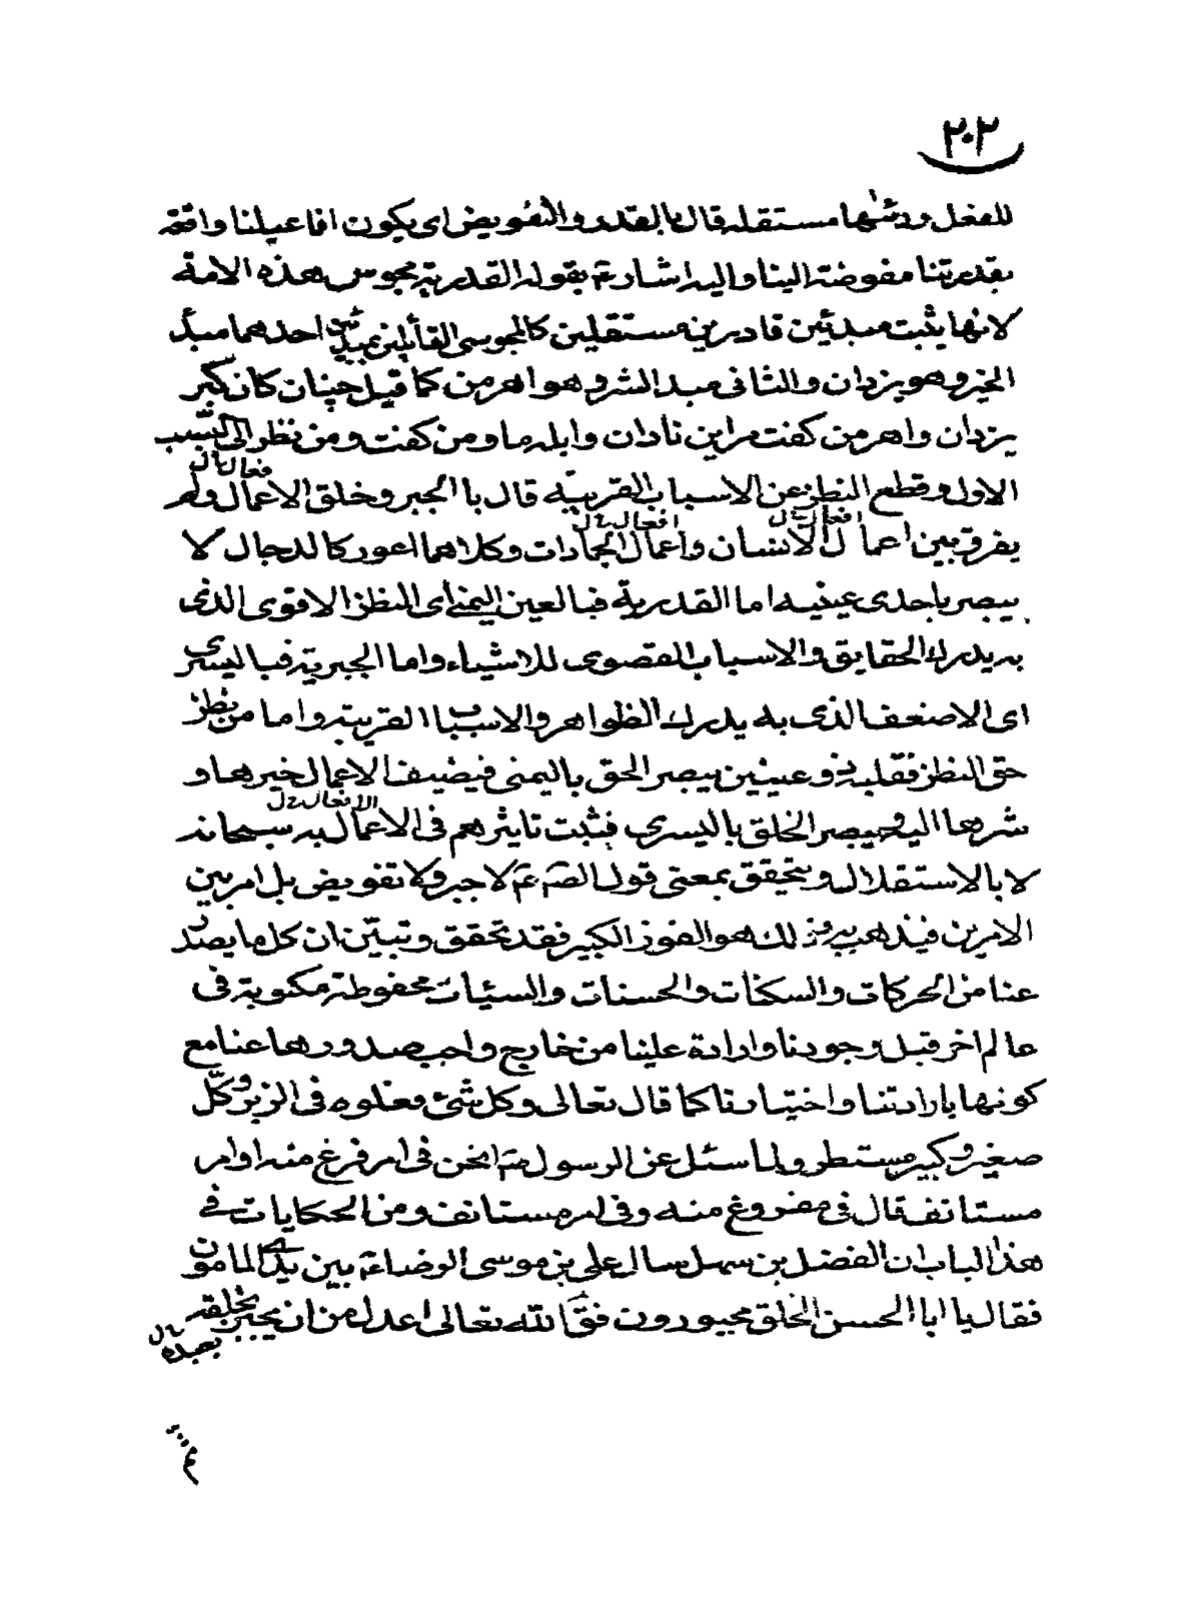 ٢٠٢
للفعل ورئتها مستقله قال بالقدر والتفويض اى يكون افاعيلنا واقعه
بقدرتنا مفوضة الينا واليه اشارة بقوله القدرية مجوس هذه الامة
لانها يثبت مبدئين قادرين مستقلين كالمجوسى القائلين بمبدئين احدهما مبدئ
الخير وهو يزدان والثانى مبدا الشر وهو اهرمن كما قيل چنان كان كبر
يزدان واهرمن كفت مراين نادان وابله ما ومن كفت ومن نظر الى السبب
الاول وقطع النظر عن الاسباب القريبيه قال با الجبر وخلق الاعمال ولم
فعال ل
يفرق بين اعمال الانسان واعمال الجمادات وكلاهما اعور كالدجال لا
افعال ل افعال ل
يبصر باحدى عينيه اما القدرية فبالعين اليمنى اى النظر الاقوى الذى
به يدرك الحقايق والاسباب القصوى للاشياء واما الجبرية فبا ليسرى
اى الاضعف الذى به يدرك الظواهر والاسباب القريبه واما من نظر
حق النظر فقلبه ذو عينين يبصر الحق باليمنى فيضيف الاعمال خيرها و
شرها اليه ويبصر الخلق باليسرى فثبت تايثرهم فى الاعمال به سبحانه
الافعال ل
لا بالاستقلال ويتحقق بمعنى قول الص ع لا جبر ولا تفويض بل امر بين
الامرين فيذهب به وذلك هو الفوز الكبير فقد تحقق وتبين ان كل ما يصدر
عنا من الحركات والسكنات والحسنات والسيئات محفوظة مكتوبة فى
عالم اخر قبل وجودنا وارادة علينا من خارج واجب صدورها عنا مع
كونها بارادتنا واختيارنا كما قال تعالى وكل شئ فعلوه فى الزبر وكل
صغير وكبير مستطر ولما سئل عن الرسول ص انحن فى امر فرغ منه او امر
مستانف قال فى مفروغ منه وفى امر مستانف ومن الحكايات فى
هذا الباب ان الفضل بن سهل سال على بن موسى الرضا ع بين يدى المامون
فقال يا ابا الحسن الخلق مجبورون فق الله تعالى اعدل من ان يجبر بخلقه
بعبده ل